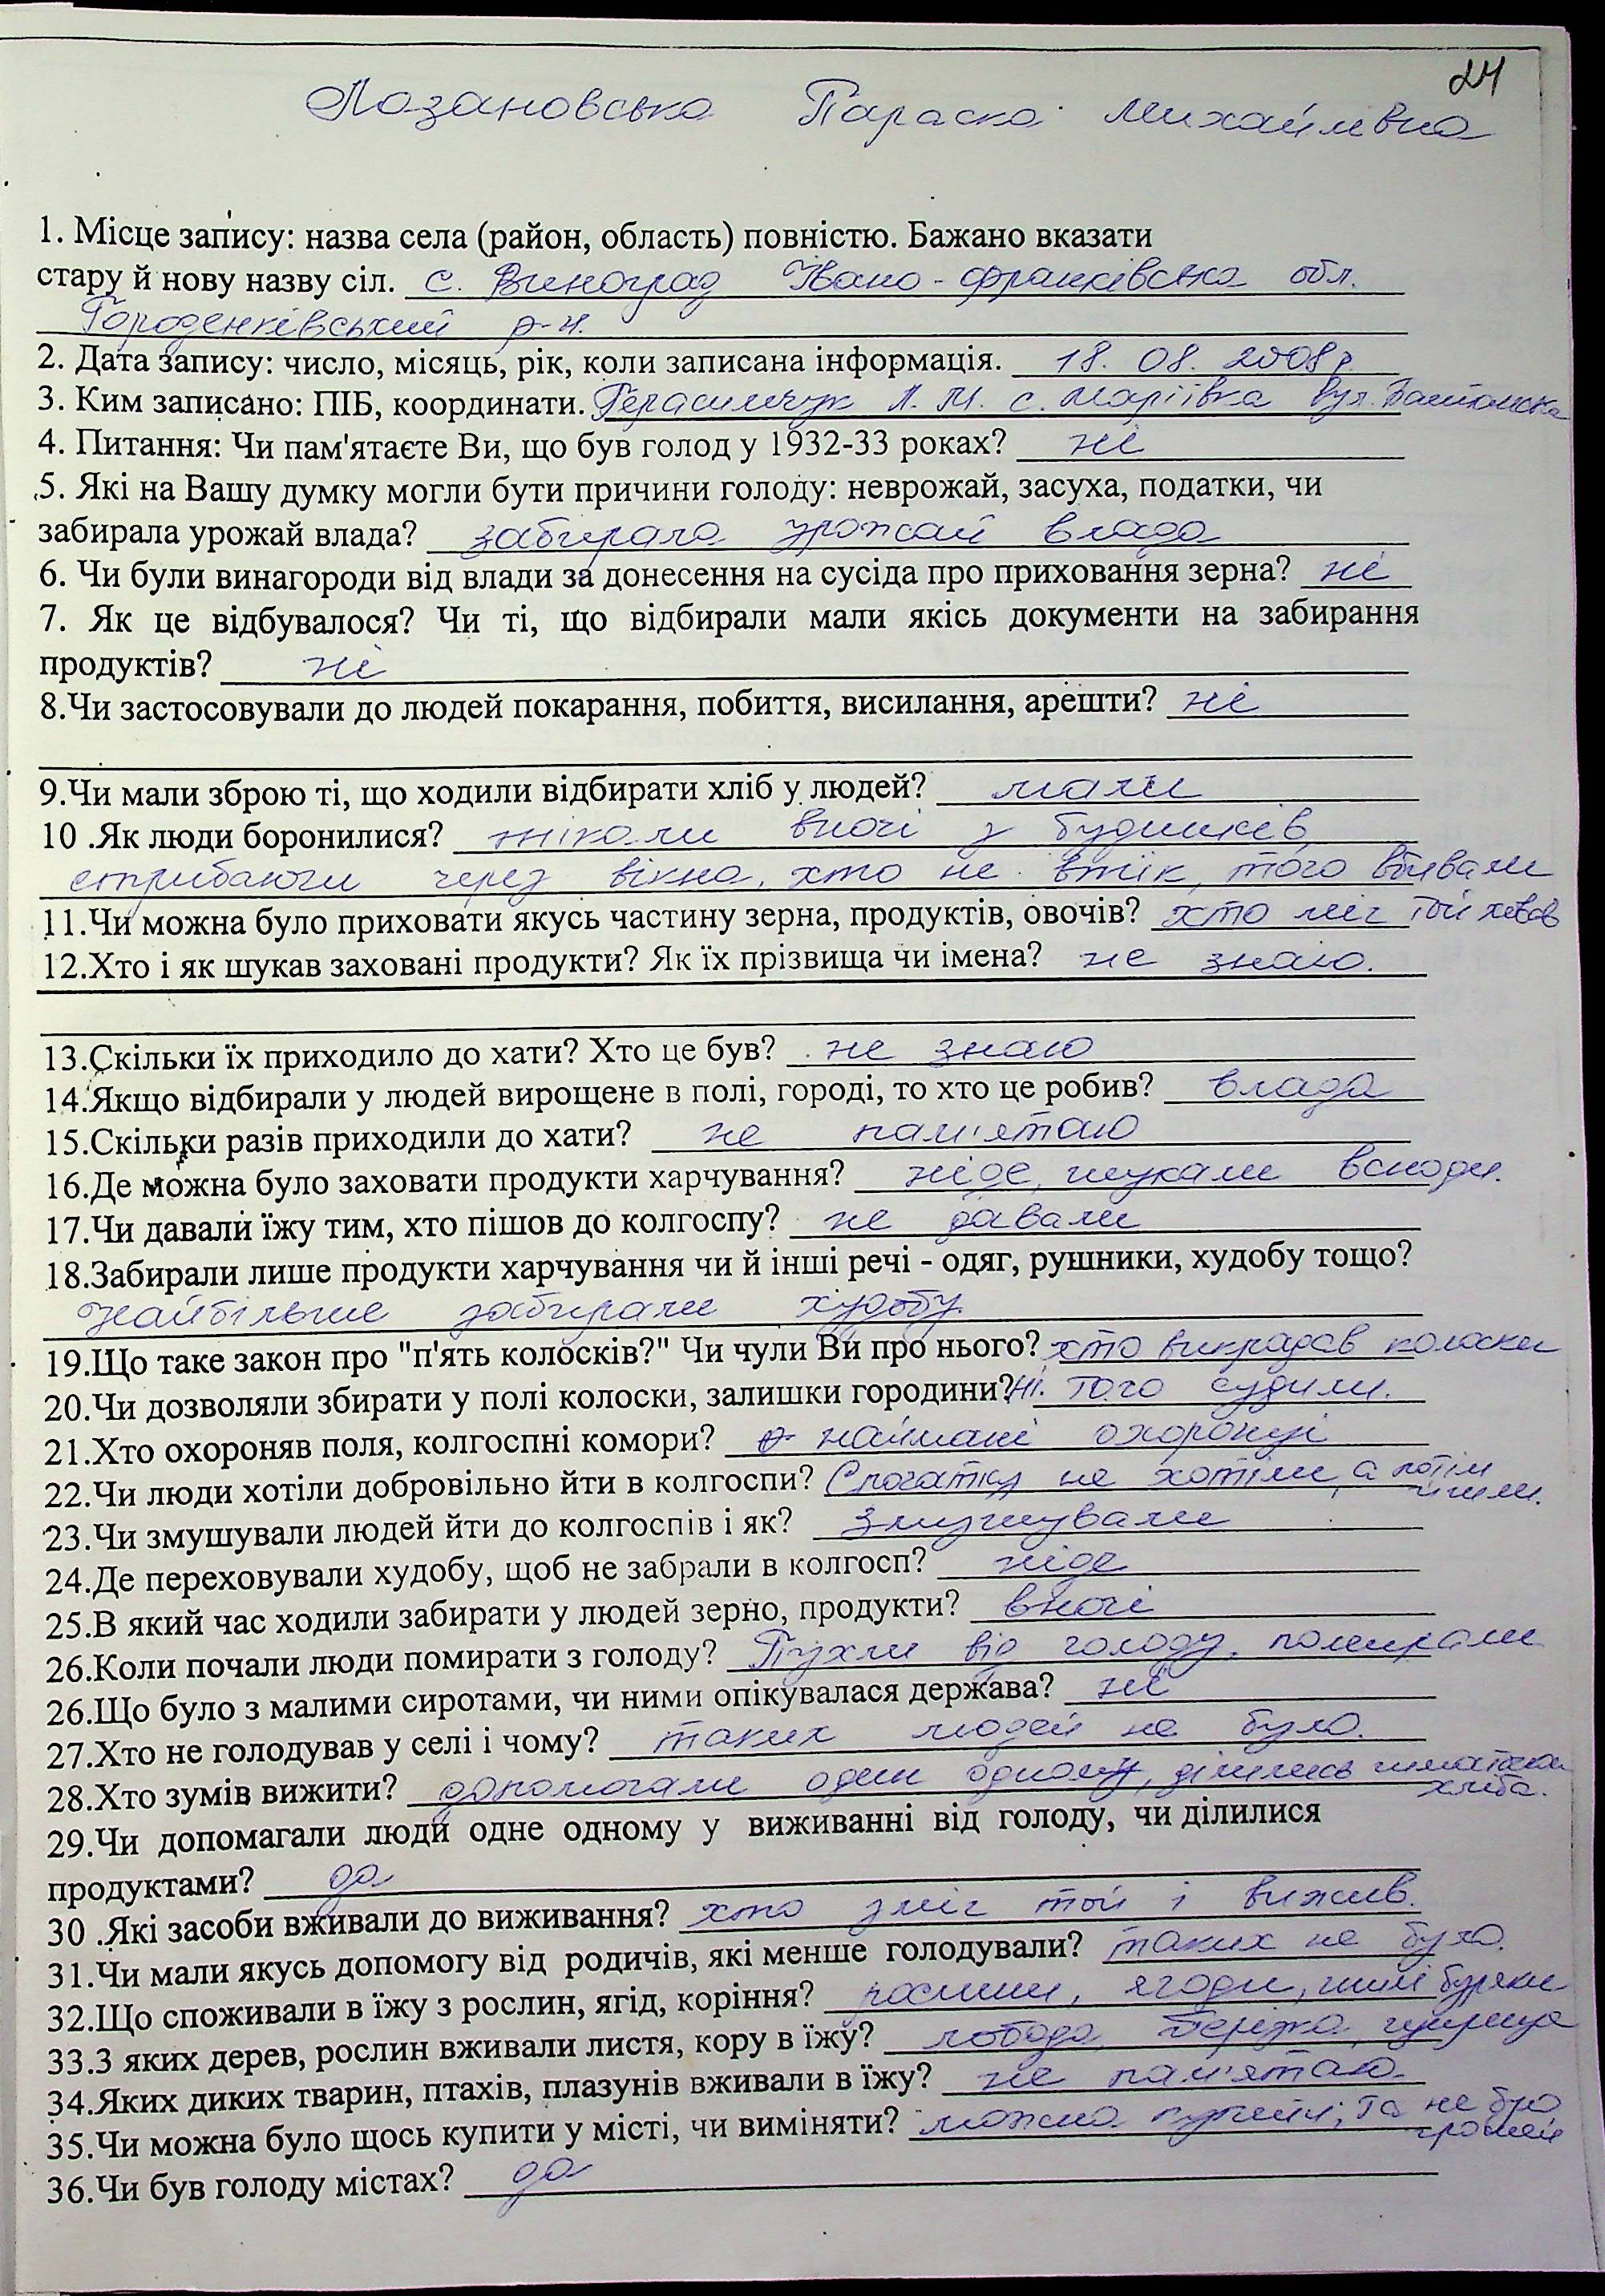 24
Лозановська Параска Михайлівна
1. Місце запису: назва села (район, область) повністю. Бажано вказати
стару й нову назву сіл. с. Виноград Івано-франківська обл.
Городенківський р-н.
2. Дата запису: число, місяць, рік, коли записана інформація. 18. 08. 2008р.
3. Ким записано: ПІБ, координати. Герасимчук Л. М. с. Маріївка вул.
4. Питання: Чи пам'ятаєте Ви, що був голод у 1932-33 роках? ні
5. Які на Вашу думку могли бути причини голоду: неврожай, засуха, податки, чи
забирала урожай влада? забирала урожай влада
6. Чи були винагороди від влади за донесення на сусіда про приховання зерна? ні
7. Як це відбувалося? Чи ті, що відбирали мали якісь документи на забирання
продуктів? ні
8.Чи застосовували до людей покарання, побиття, висилання, арешти? ні
9.Чи мали зброю ті, що ходили відбирати хліб у людей? мали
10 .Як люди боронилися? тікали вночі з будинків,
стрибаючи через вікна, хто не втік, того вбивали
11.Чи можна було приховати якусь частину зерна, продуктів, овочів? хто міг той ховав
12.Хто і як шукав заховані продукти? Як їх прізвища чи імена? не знаю.
13.Скільки їх приходило до хати? Хто це був? не знаю
14.Якщо відбирали у людей вирощене в полі, городі, то хто це робив? влада
15.Скільки разів приходили до хати? не пам'ятаю
16.Де можна було заховати продукти харчування? ніде, шукали всюди.
17.Чи давали їжу тим, хто пішов до колгоспу? не давали
18.Забирали лише продукти харчування чи й інші речі - одяг, рушники, худобу тощо?
найбільше забирали худобу.
19.Що таке закон про "п'ять колосків?" Чи чули Ви про нього? хто викрадав колоски
20.Чи дозволяли збирати у полі колоски, залишки городини? ні. того судили.
21.Хто охороняв поля, колгоспні комори? наймані охоронці
22.Чи люди хотіли добровільно йти в колгоспи? Спочатку не хотіли, а потім
йшли.
23.Чи змушували людей йти до колгоспів і як? змушували
24.Де переховували худобу, щоб не забрали в колгосп? ніде
25.В який час ходили забирати у людей зерно, продукти? вночі
26.Коли почали люди помирати з голоду? Пухли від голоду, помирали
26.Що було з малими сиротами, чи ними опікувалася держава? ні
27.Хто не голодував у селі і чому? таких людей не було.
28.Хто зумів вижити? допомагали один одному, ділились шматком
хліба.
29.Чи допомагали люди одне одному у виживанні від голоду, чи ділилися
продуктами? да
30 .Які засоби вживали до виживання? хто зміг той і вижив.
31.Чи мали якусь допомогу від родичів, які менше голодували? таких не було.
32.Що споживали в їжу з рослин, ягід, коріння? рослини, ягоди, буряки
33.З яких дерев, рослин вживали листя, кору в їжу? лобода, береза, щириця
34.Яких диких тварин, птахів, плазунів вживали в їжу? не пам'ятаю.
35.Чи можна було щось купити у місті, чи виміняти? можна купити, та не було
грошей
36.Чи був голоду містах? да